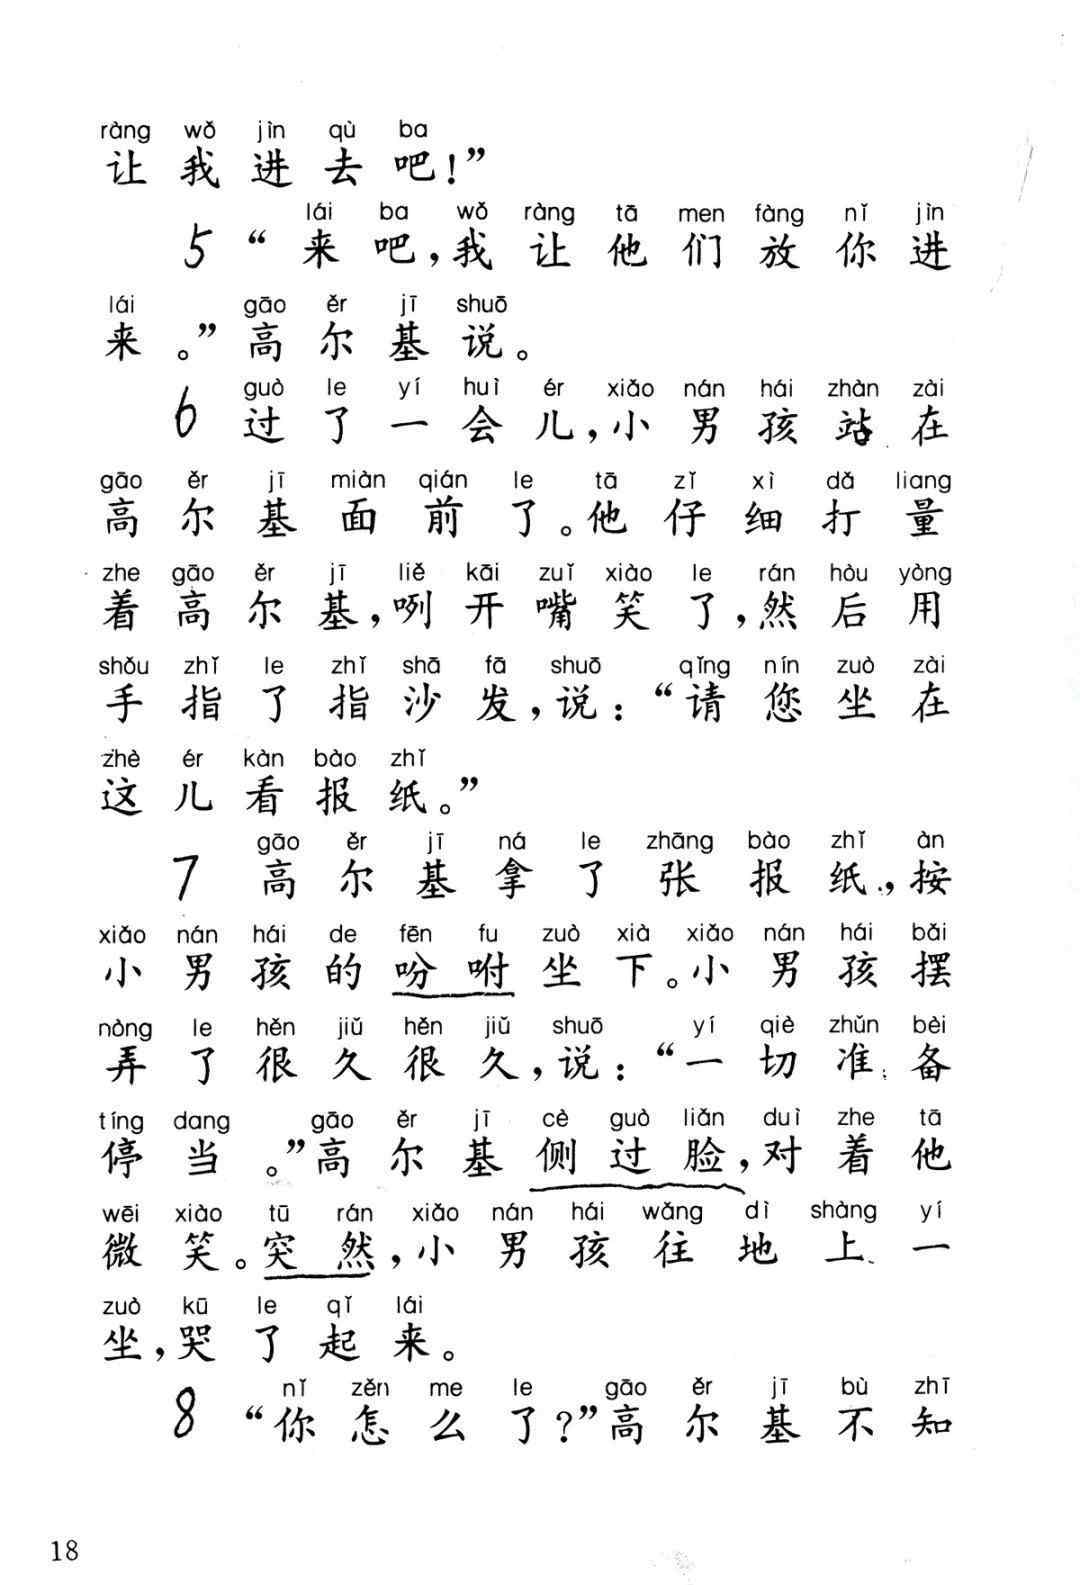 ràng wǒ jìn qù ba
让我进去吧！”
lái ba wǒ ràng tā men fàng nǐ jìn
5 “来吧，我让他们放你进
lái gāo ěr jī shuō
来。”高尔基说。
guò le yí huì ér xiǎo nán hái zhàn zài
6 过了一会儿，小男孩站在
gāo ěr jī miàn qián le tā zǐ xì dǎ liang
高尔基面前了。他仔细打量
zhe gāo ěr jī liě kāi zuǐ xiào le rán hòu yòng
着高尔基，咧开嘴笑了，然后用
shǒu zhǐ le zhǐ shā fā shuō qǐng nín zuò zài
手指了指沙发，说：“请您坐在
zhè ér kàn bào zhǐ
这儿看报纸。”
gāo ěr jī ná le zhāng bào zhǐ àn
7 高尔基拿了张报纸，按
xiǎo nán hái de fēn fu zuò xià xiǎo nán hái bǎi
小男孩的吩咐坐下。小男孩摆
nòng le hěn jiǔ hěn jiǔ shuō yí qiè zhǔn bèi
弄了很久很久，说：“一切准备
tíng dang gāo ěr jī cè guò liǎn duì zhe tā
停当。”高尔基侧过脸，对着他
wēi xiào tū rán xiǎo nán hái wǎng dì shàng yí
微笑。突然，小男孩往地上一
zuò kū le qǐ lái
坐，哭了起来。
nǐ zěn me le gāo ěr jī bù zhī
8 “你怎么了？”高尔基不知
18